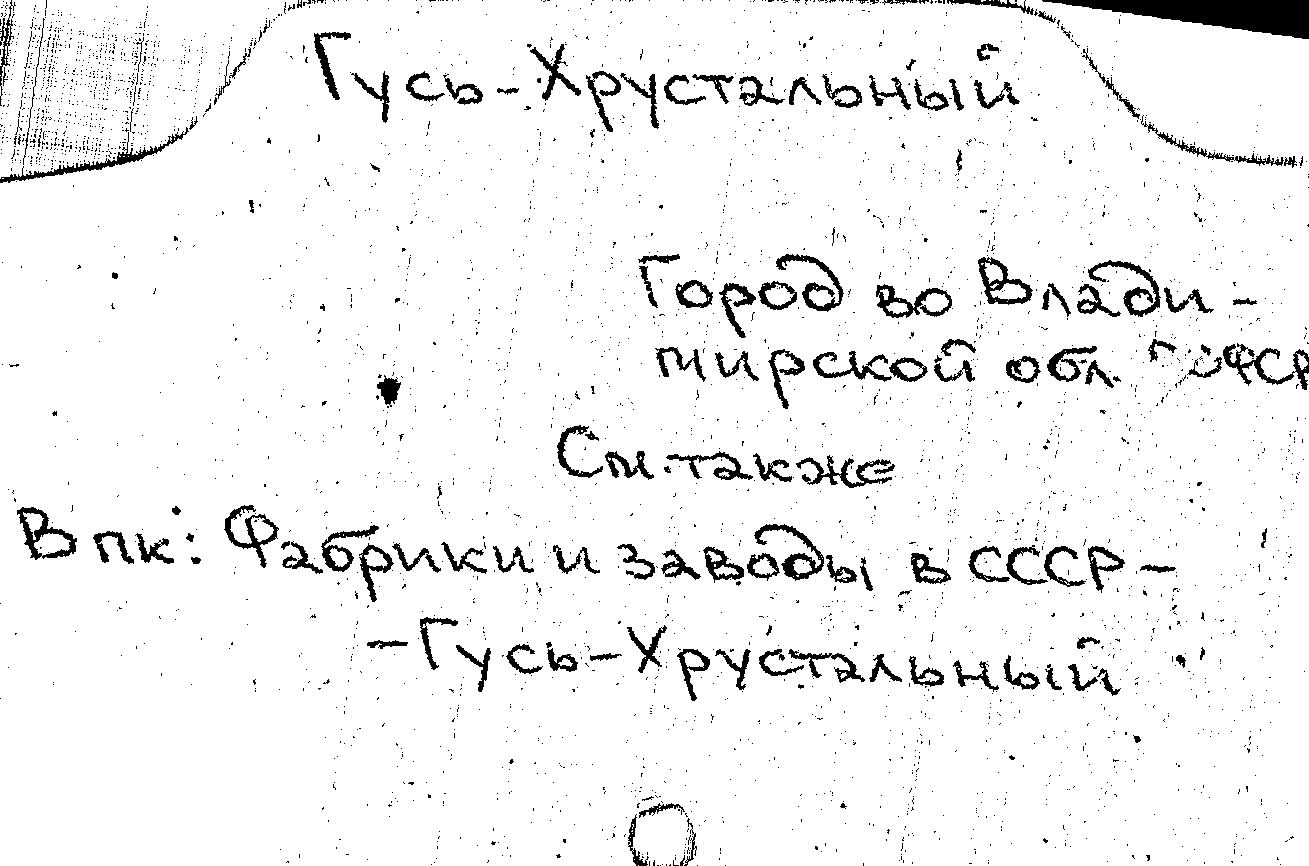 Гусь-Хрустальный
Город во Влади-
мирской обл.
См. также
В пк: Фабрики и заводы в СССР -
- Гусь-Хрустальный